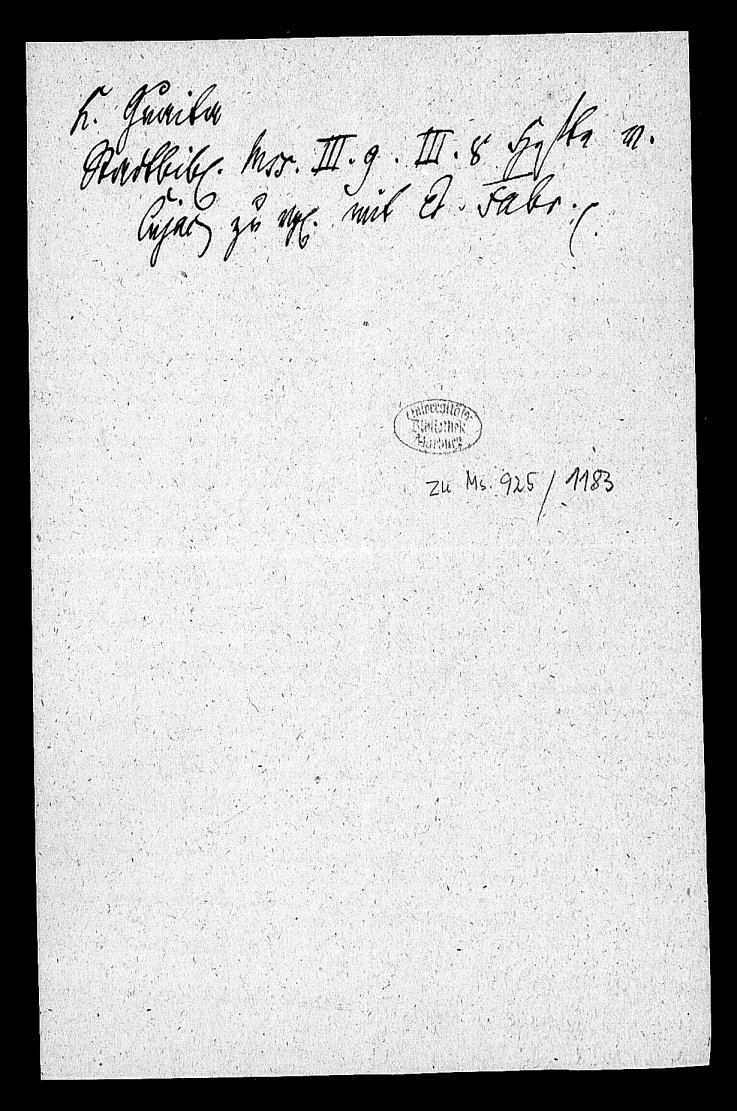 h. Guaita
Stadtbibl. Mss. III. 9. III. 8 u.
Cujac zu vgl. mit Fabr.
Universitäts-
Bibliothek
Marburg
zu Ms. 925/1183